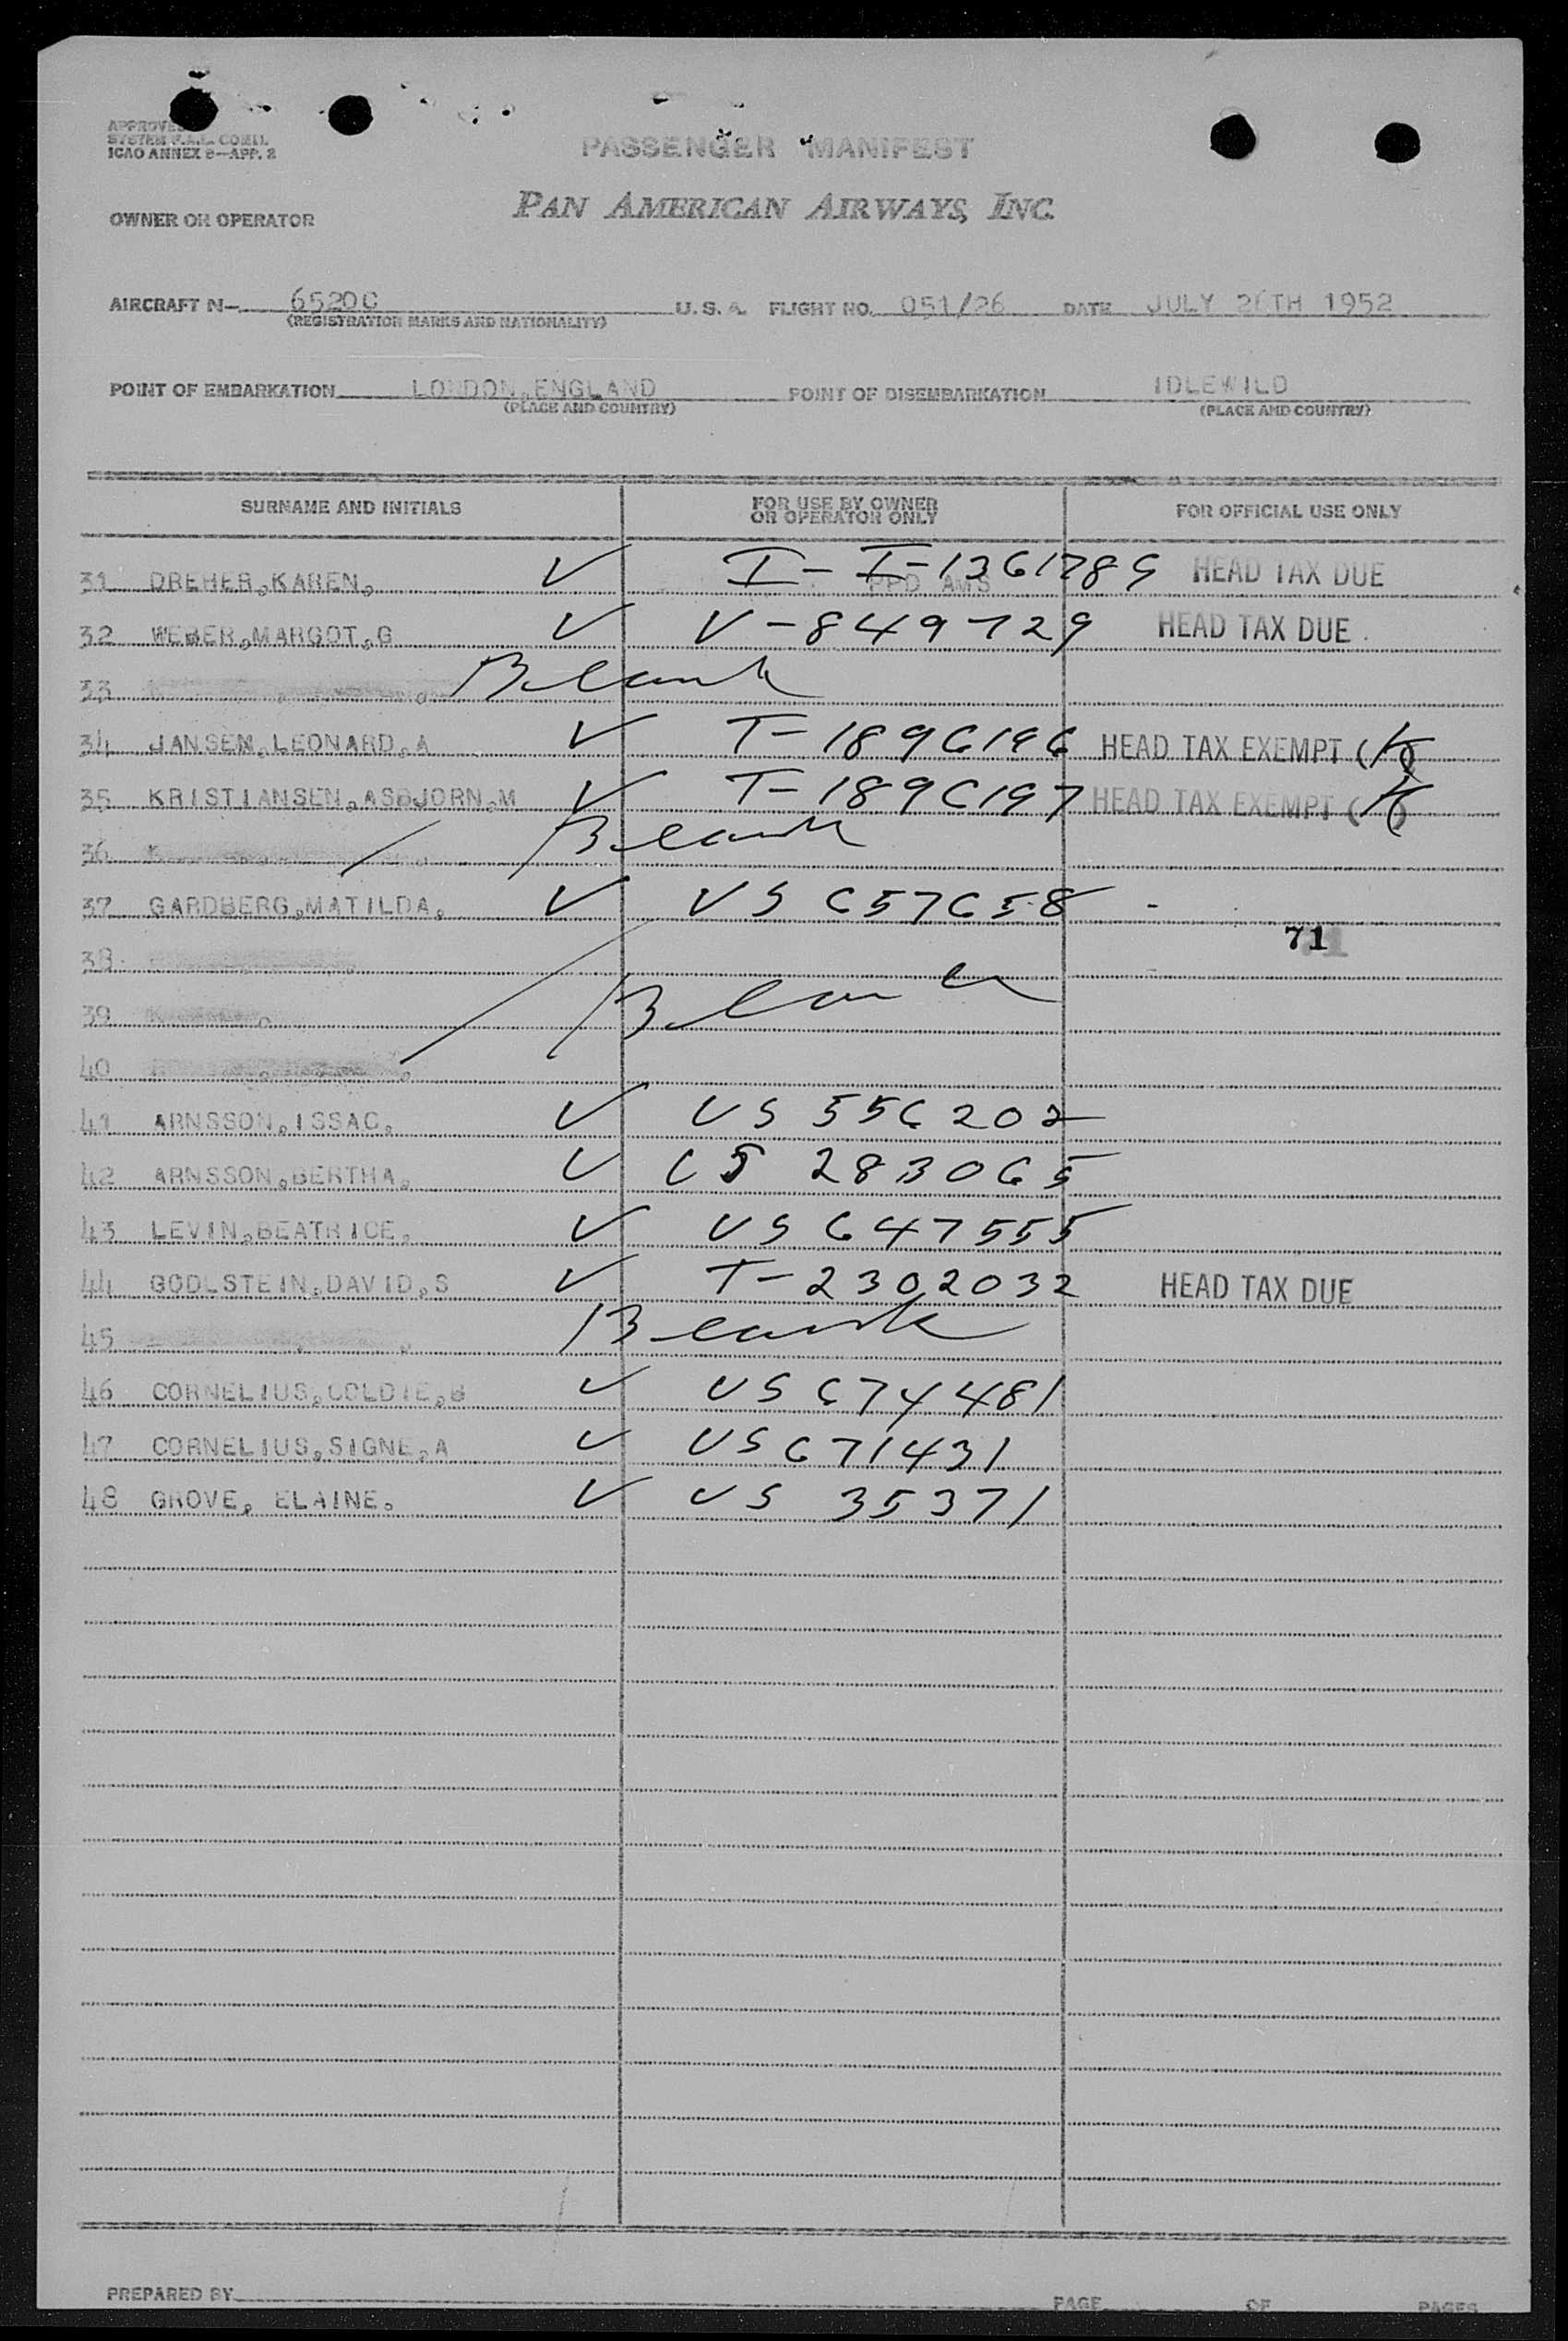 APPROVED
SYSTEM F.A.L. COM'L
ICAO ANNEX 9—APP. 2
PASSENGER MANIFEST
PAN AMERICAN AIRWAYS, INC.
OWNER OR OPERATOR
AIRCRAFT N— 6520C U. S. A. FLIGHT NO. 051/26 DATE JULY 26TH 1952
(REGISTRATION MARKS AND NATIONALITY)
POINT OF EMBARKATION LONDON, ENGLAND POINT OF DISEMBARKATION IDLEWILD
(PLACE AND COUNTRY) (PLACE AND COUNTRY)
SURNAME AND INITIALS FOR USE BY OWNER OR OPERATOR ONLY FOR OFFICIAL USE ONLY
31 DREHER,KAREN, V I-I-1361789 HEAD TAX DUE
PPD AMS
32 WEBER,MARGOT,G V V-849729 HEAD TAX DUE
33 Blank
34 JANSEN,LEONARD,A V T-1896196 HEAD TAX EXEMPT (K)
35 KRISTIANSEN,ASBJORN,M V T-1896197 HEAD TAX EXEMPT (K)
36 Blank
37 GARDBERG,MATILDA, V US 657658 -
71
38
39 Blank
40
41 ARNSSON,ISSAC, V US 556202
42 ARNSSON,BERTHA, V US 283065
43 LEVIN,BEATRICE, V US 647555
44 GODLSTEIN,DAVID,S V T-2302032 HEAD TAX DUE
45 Blank
46 CORNELIUS,GOLDIE,B V US 674481
47 CORNELIUS,SIGNE,A V US 671431
48 GROVE, ELAINE, V US 35371
PREPARED BY PAGE OF PAGES